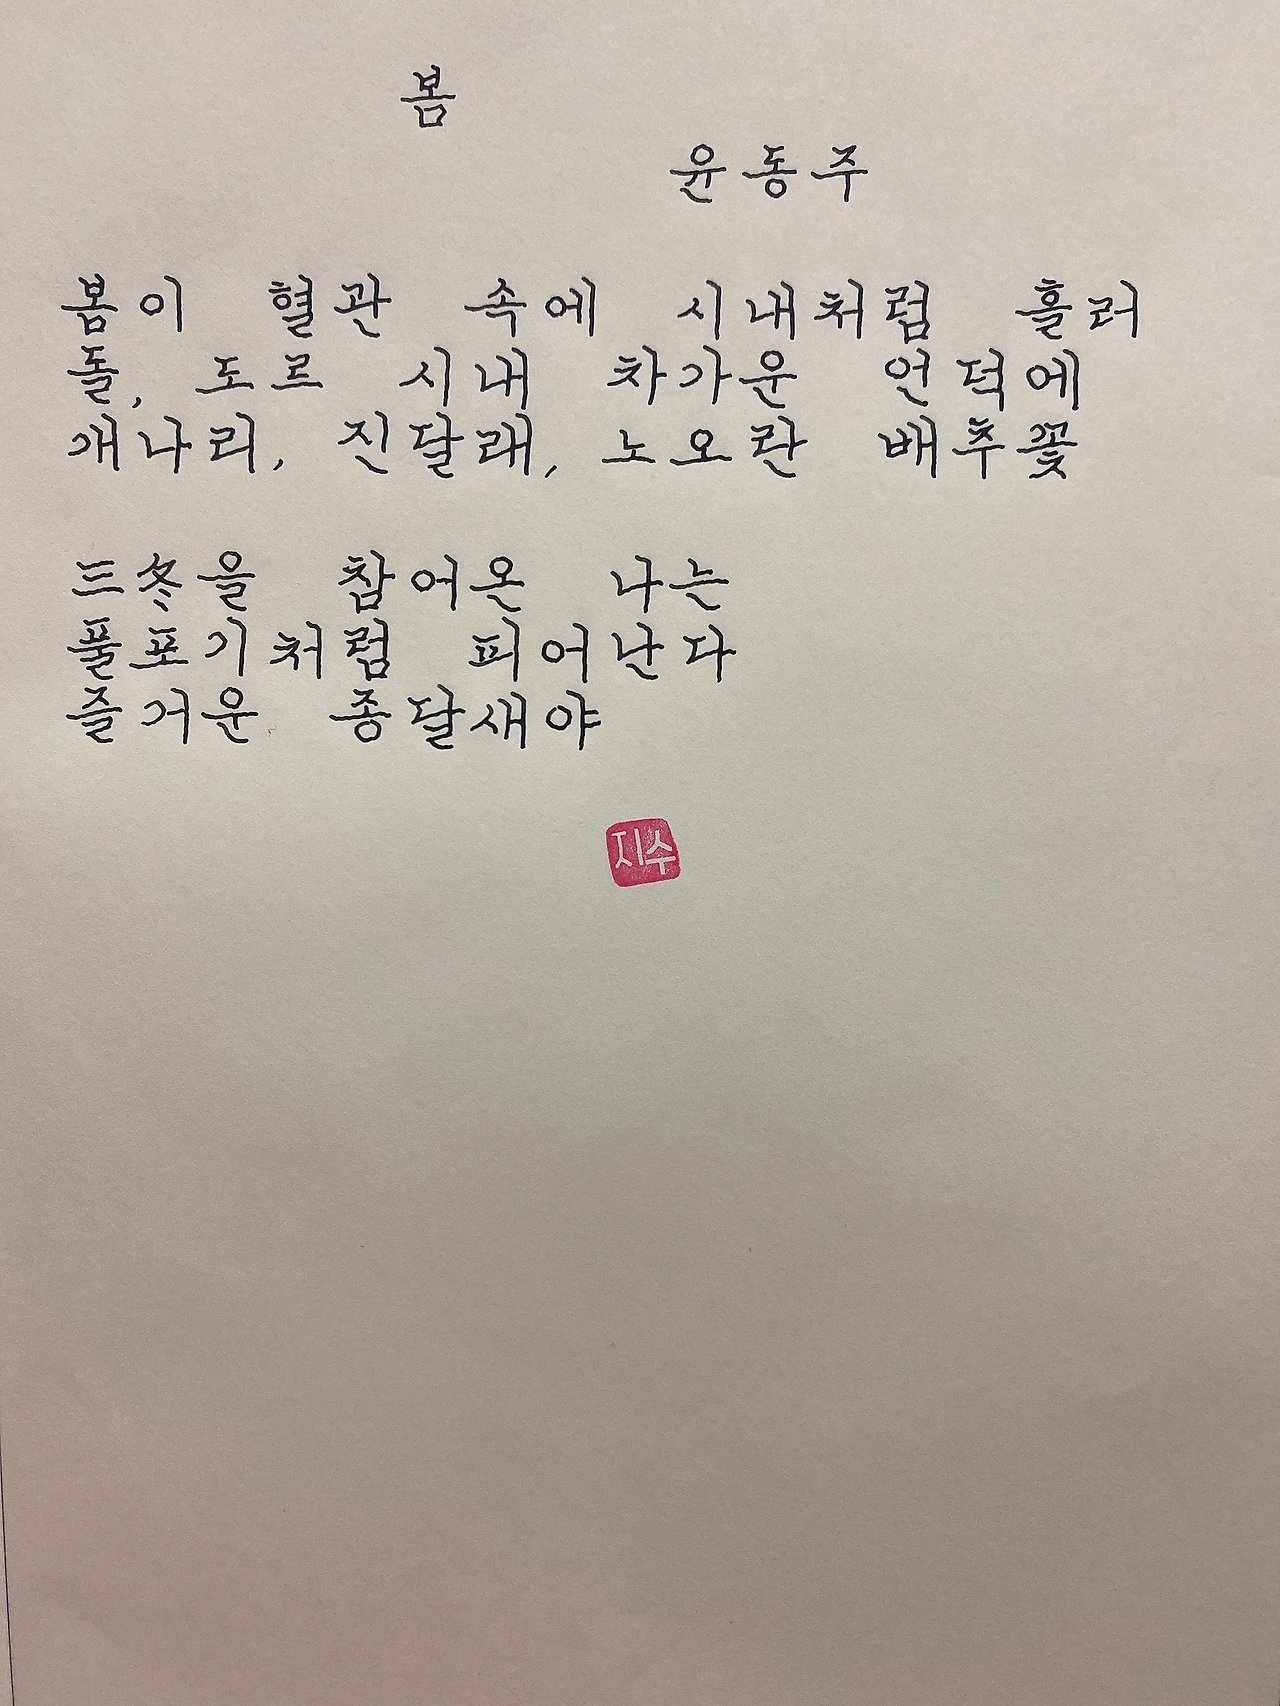 봄
윤동주
봄이 혈관 속에 시내처럼 흘러
돌, 도르 시내 차가운 언덕에
개나리, 진달래, 노오란 배추꽃
三冬을 참어온 나는
풀포기처럼 피어난다
즐거운 종달새야
지수